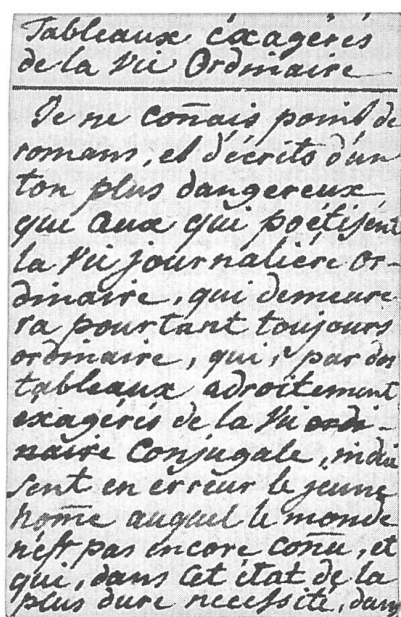 Tableaux éxagérés
de la Vie Ordinaire
Je ne coñais point de
romans, et d'écrits d'un
ton plus dangereux
que ceux qui poétisent
la Vie journalière or-
dinaire, qui demeure
ra pourtant toujours
ordinaire, qui, par des
tableaux adroitement
exagérés de la Vie ordi-
naire Conjugale, indui
sent en erreur le jeune
home auquel le monde
n'est pas encore coñu, et
qui, dans cet état de la
plus dure necessité, dans